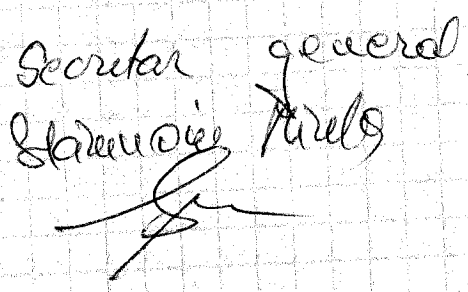 Secretar general
Stănuoiu Mirela